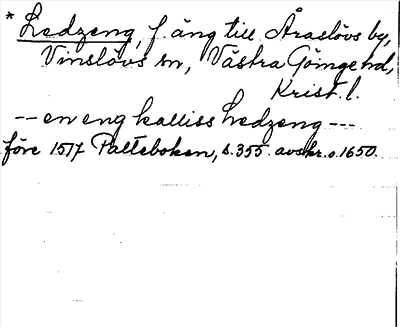 * Ledzeng, f. äng till Åraslövs by,
Vinslövs sn, Västra Göinge hd,
Krist. l.
-- en eng kalliss Ledzeng ---
före 1517 Palteboken, s. 355. avskr. o. 1650.